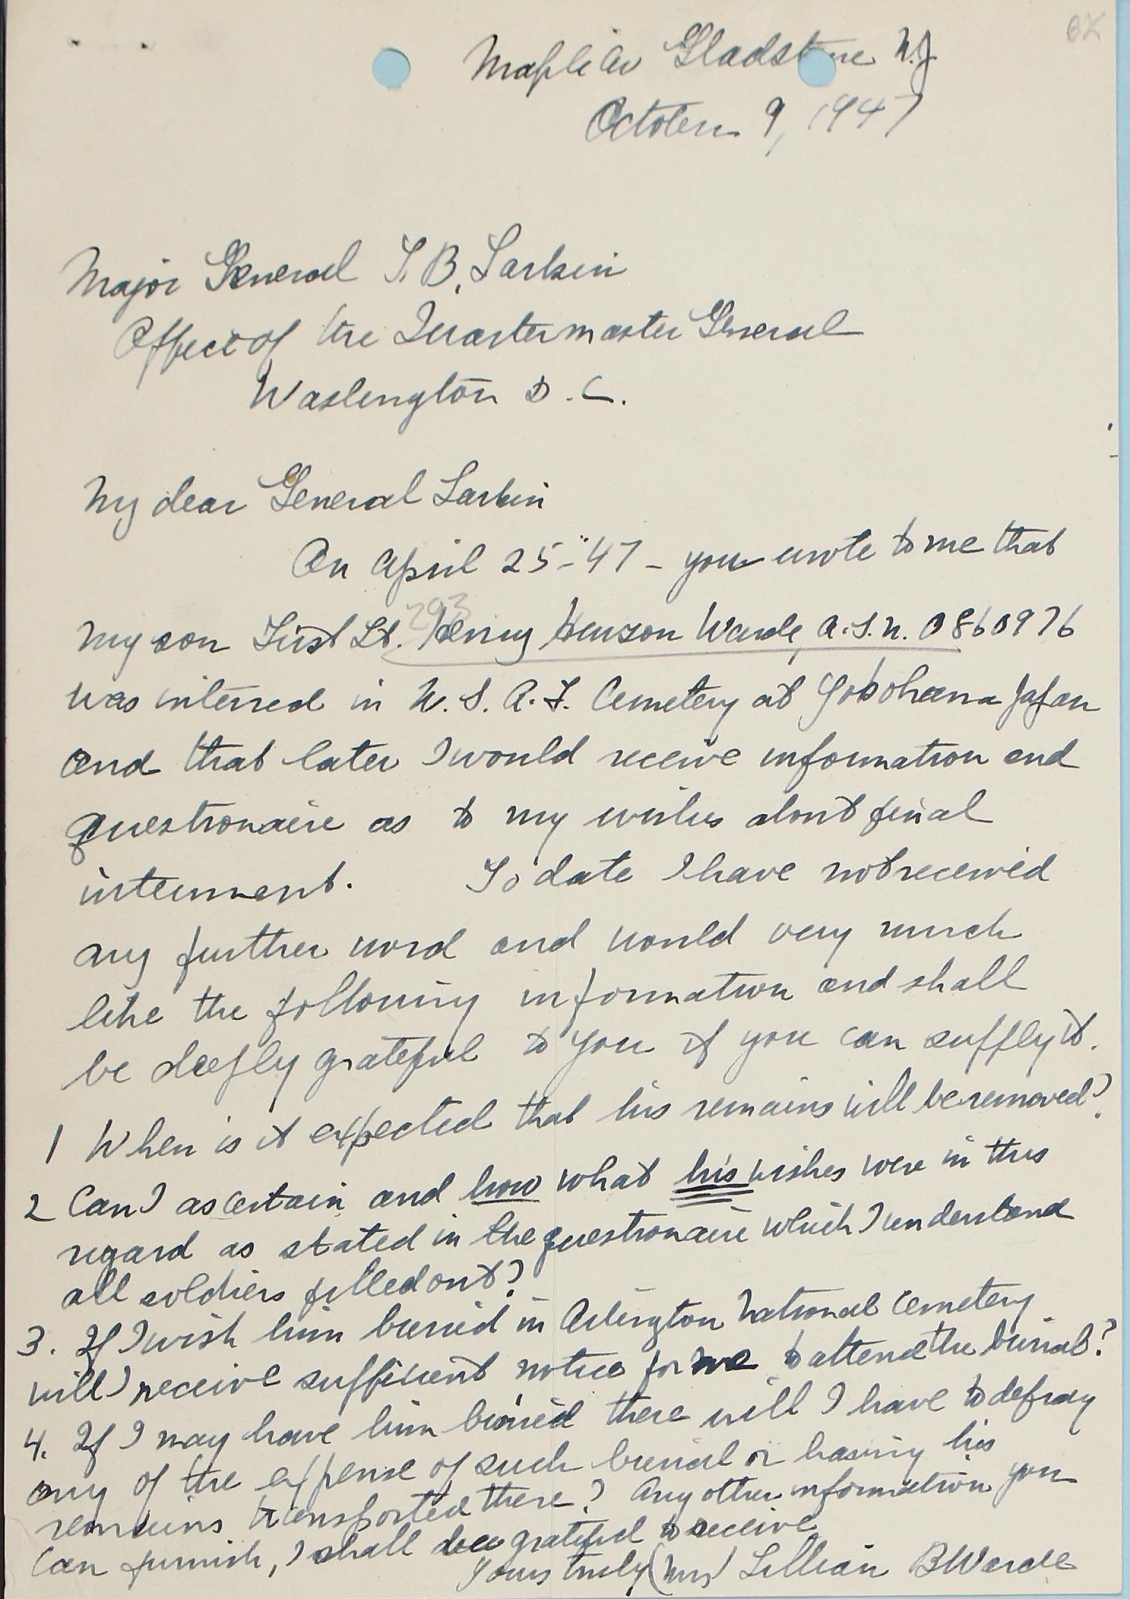 OK
Maple Av Gladstone N.J
October 9, 1947
Major General T. B. Larkin
Office of the Quartermaster General
Washington D.C.
My dear General Larkin
On April 25-"47 - you wrote to me that
293
my son First Lt. Henry Ward, A.S.N. 0860976
was interred in U.S.A.F. Cemetery at Yokohama Japan
and that later I would receive information and
questionaire as to my wishes about final
interment. To date I have not received
any further word and would very much
like the following information and shall
be deeply grateful to you if you can supply it.
1 When is it expected that his remains will be removed?
2 Can I ascertain and how what his wishes were in this
regard as stated in the questionaire which I understand
all soldiers filled out?
3. If I wish him buried in Arlington National Cemetery
will I receive sufficient notice for me to attend the burial?
4. If I may have him buried there will I have to defray
any of the expense of such burial or having his
remains transported there? Any other information you
can furnish, I shall be grateful to receive
Yours truly (Mrs) Lillian B Warde